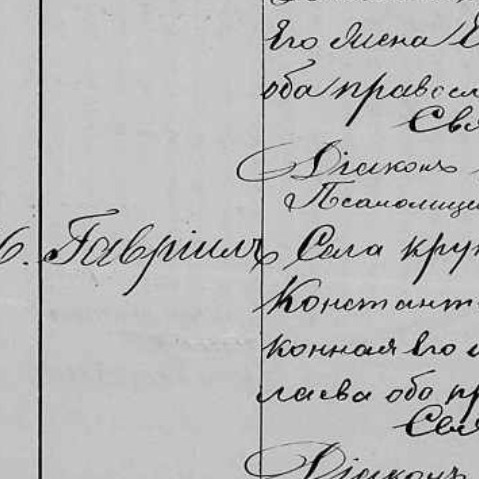 Его жена Е
оба правосл
Свя
Діаконъ
Псаломщи
6. Гавріилъ Села кру
Констант
конная его
лаева оба пр
Свя
Діаконъ